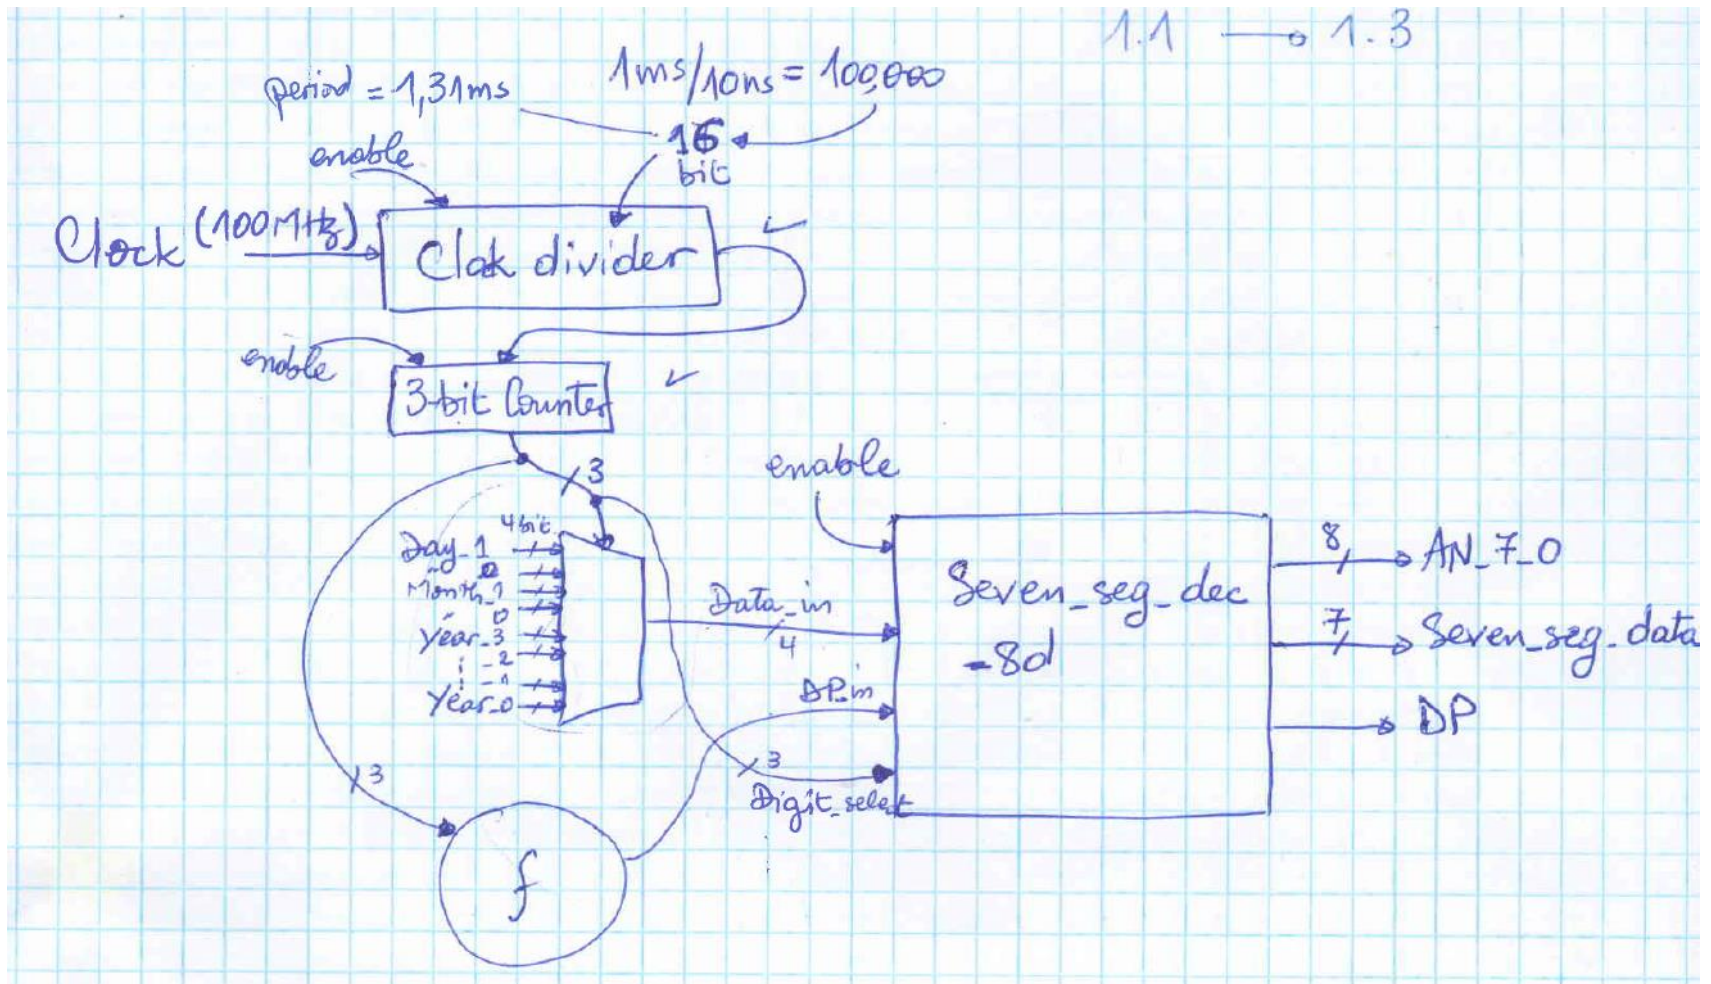 1.1 → 1.3
period = 1,31ms
1ms/10ns = 100,000
16
bit
enable
Clock (100MHz)
Clok divider
enable
3-bit Counter
3
enable
4bit
Day_1
0
Month_1
0
Year_3
-2
-1
Year_0
Data_in
4
DP_in
3
Digit_select
3
f
Seven_seg_dec
-8d
8
AN_7_0
7
Seven_seg_data
DP